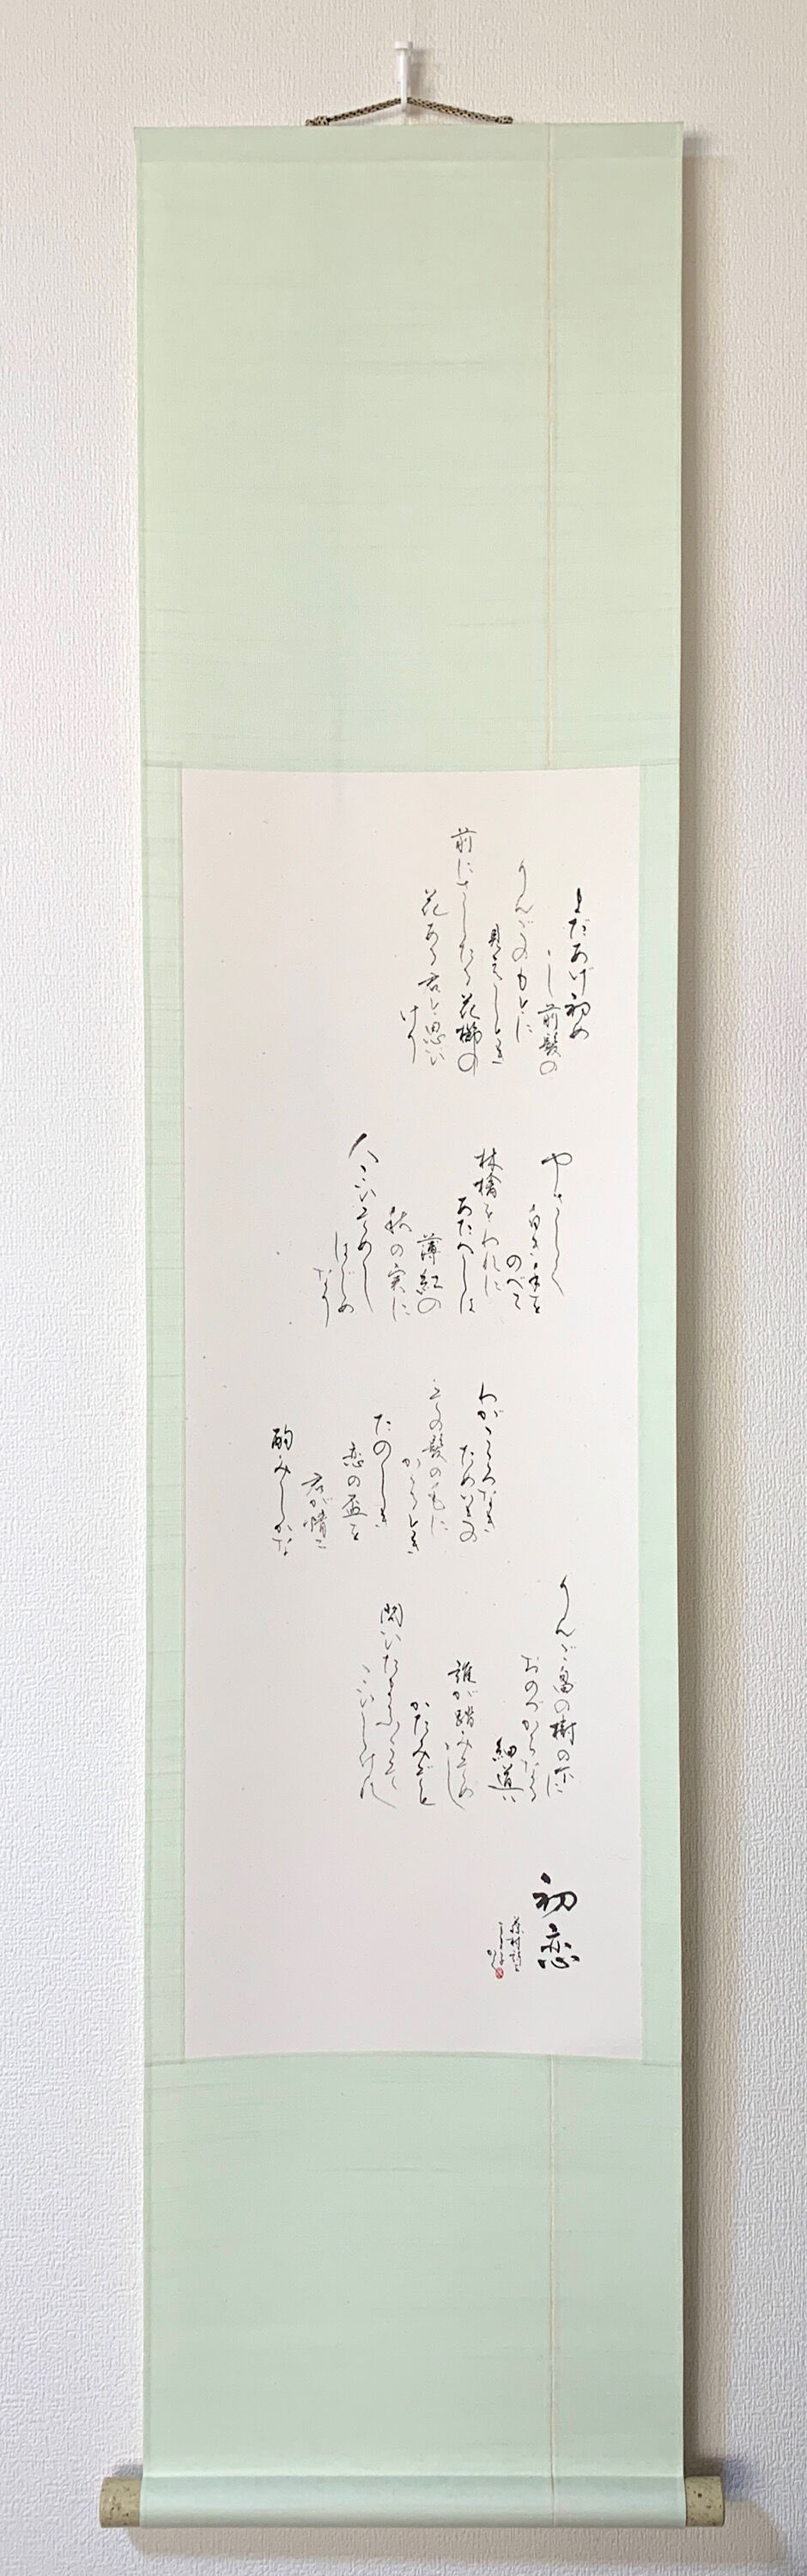 まだあげ初め
し前髪の
りんごのもとに
見えしとき
前にさしたる花櫛の
花ある君と思ひ
けり
やさしく
白き手を
のべて
林檎をわれに
あたへしは
薄紅の
秋の実に
人こひそめし
はじめ
なり
わがこゝろなき
ためいきの
その髪の毛に
かゝるとき
たのしき
恋の盃を
君が情に
酌みしかな
りんご畠の樹の下に
おのづからなる
細道は
誰が踏みそめ
し
かたみぞと
問ひたまふこそ
こひしけれ
初恋
藤村詩